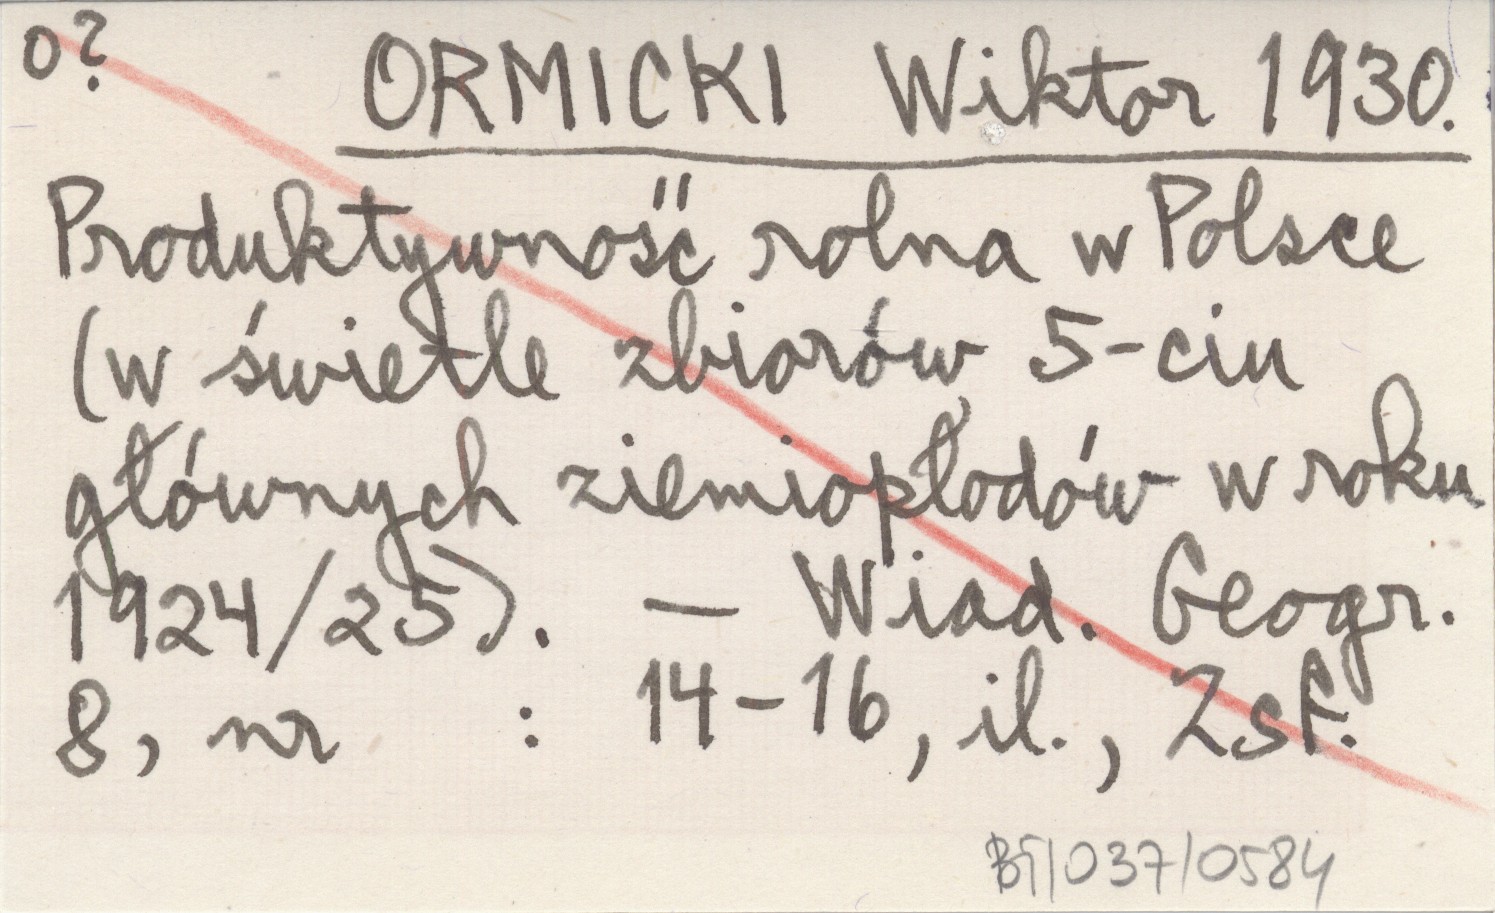 o?
ORMICKI Wiktor 1930.
Produktywność rolna w Polsce
(w świetle zbiorów 5-ciu
głównych ziemiopłodów w roku
1924/25). — Wiad. Geogr.
8, nr : 14-16, il., Zsf.
BT/037/0584